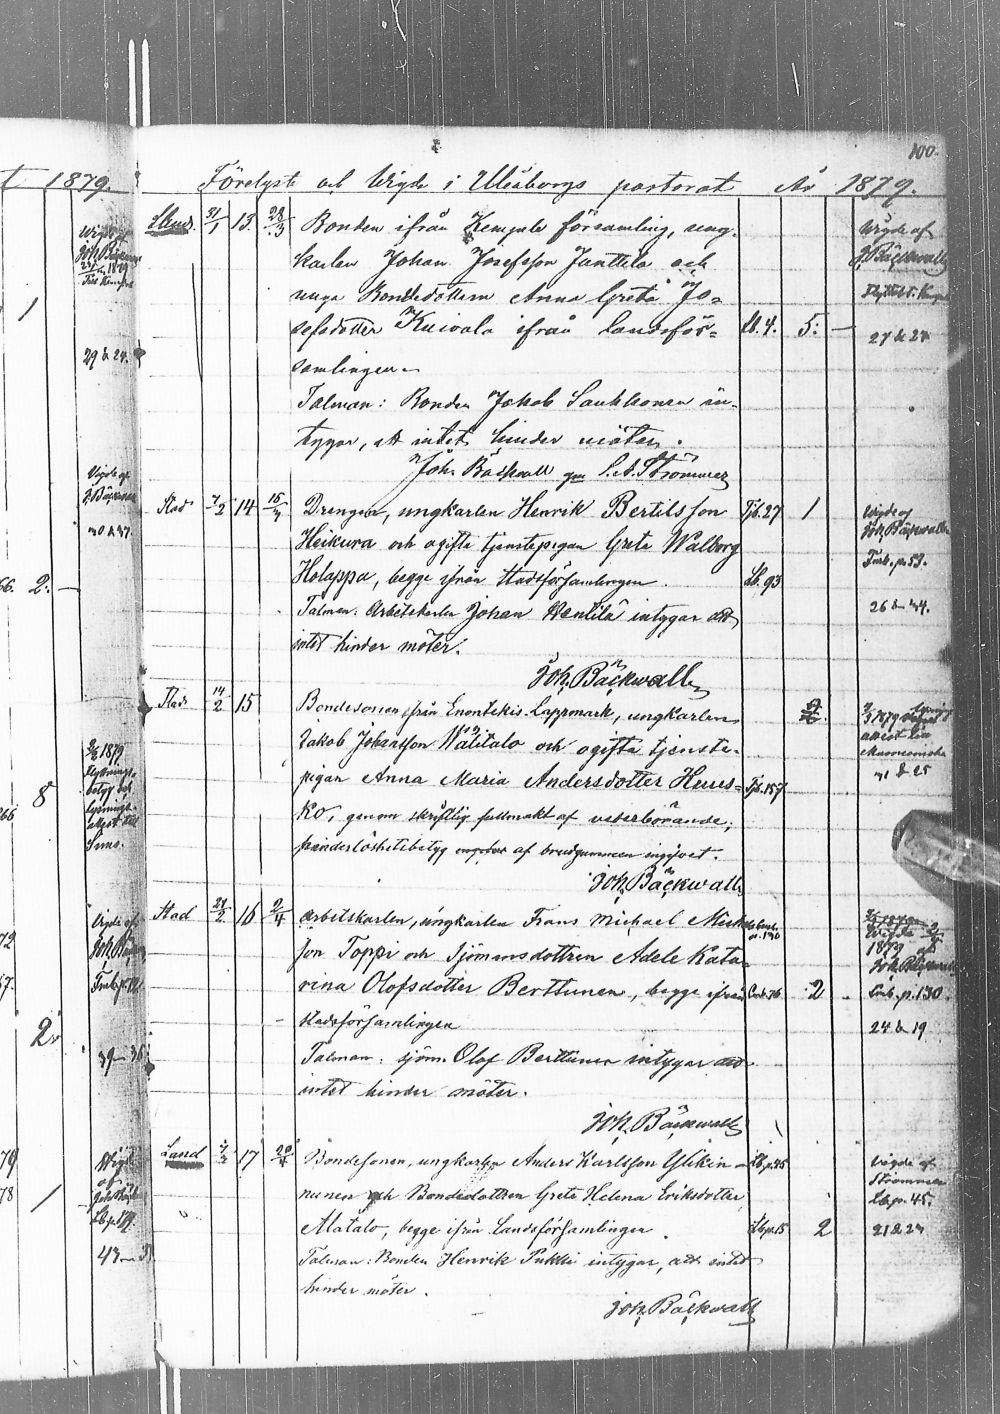 100.
1879.
Förelyste och Wigde i Uleåborgs pastorat År 1879.
Wigde af
Joh. Bäckwall
29 & 24.
Land. 31/1 13. 23/3 Bonden ifrån Kempele församling, ung-
karlen Johan Josefsson Janttila och
unga Bondedottern Anna Greta Jo-
sefsdotter Kuivala ifrån landsför- Lb. 4. 5: —
samlingen.
Talman: Bonden Jakob Saukkonen in-
tygar, att intet hinder möter.
Joh. Bäckwall gm S. A. Strömmer
Wigde af
J. Bäckwall
27 & 24
Wigde af
J. Bäckwall
Stad 7/2 14 Drengen, ungkarlen Henrik Bertilsson Tjb. 27 1
Heikura och ogifta tjenstepigan Greta Walborg
Holappa, begge ifrån Stadsförsamlingen. Lb. 93
Talman: Arbetskarlen Johan Kentilä intygar att
intet hinder möter.
Joh. Bäckwall
Wigde af
Joh. Bäckwall
Inb. p. 59.
26 & 44.
66. 2: —
Stad 14/2 15 Bondesonen ifrån Enontekis Lappmark, ungkarlen
Jakob Johansson Wälitalo och ogifta tjenste-
pigan Anna Maria Andersdotter Huus- Tjb. 157
ko, genom skriftlig fullmakt af vederbörande;
hinderlöshetsbetyg af brudgummen ingifvet.
Joh. Bäckwall
31 & 25
1879
Flyttnings-
betyg och
lysnings-
attest till
266 8
Stad 21/2 16 2/4 Arbetskarlen, ungkarlen Frans Michael Mickels-
son Toppi och Sjömansdottren Adele Kata-
rina Olofsdotter Berttunen, begge ifrån 2
stadsförsamlingen
Talman: sjöm. Olof Berttunen intygar att
intet hinder möter.
Joh. Bäckwall
Wigde 2/4
1879 af
Joh. Bäckwall
Inb. p. 130.
24 & 19
Wigde af
Joh. Bäckwall
2:
Land 17 20/4 Bondesonen, ungkarlen Anders Karlsson Ylikin- Lb. p. 45
nunen och Bondedottren Greta Helena Eriksdotter
Alatalo, begge ifrån Landsförsamlingen. Lb. p. 15 2
Talman: Bonden Henrik Pukki intygar, att intet
hinder möter.
Joh. Bäckwall
Wigde af
Strömmer
Lb. p. 45.
21 & 24
79
78